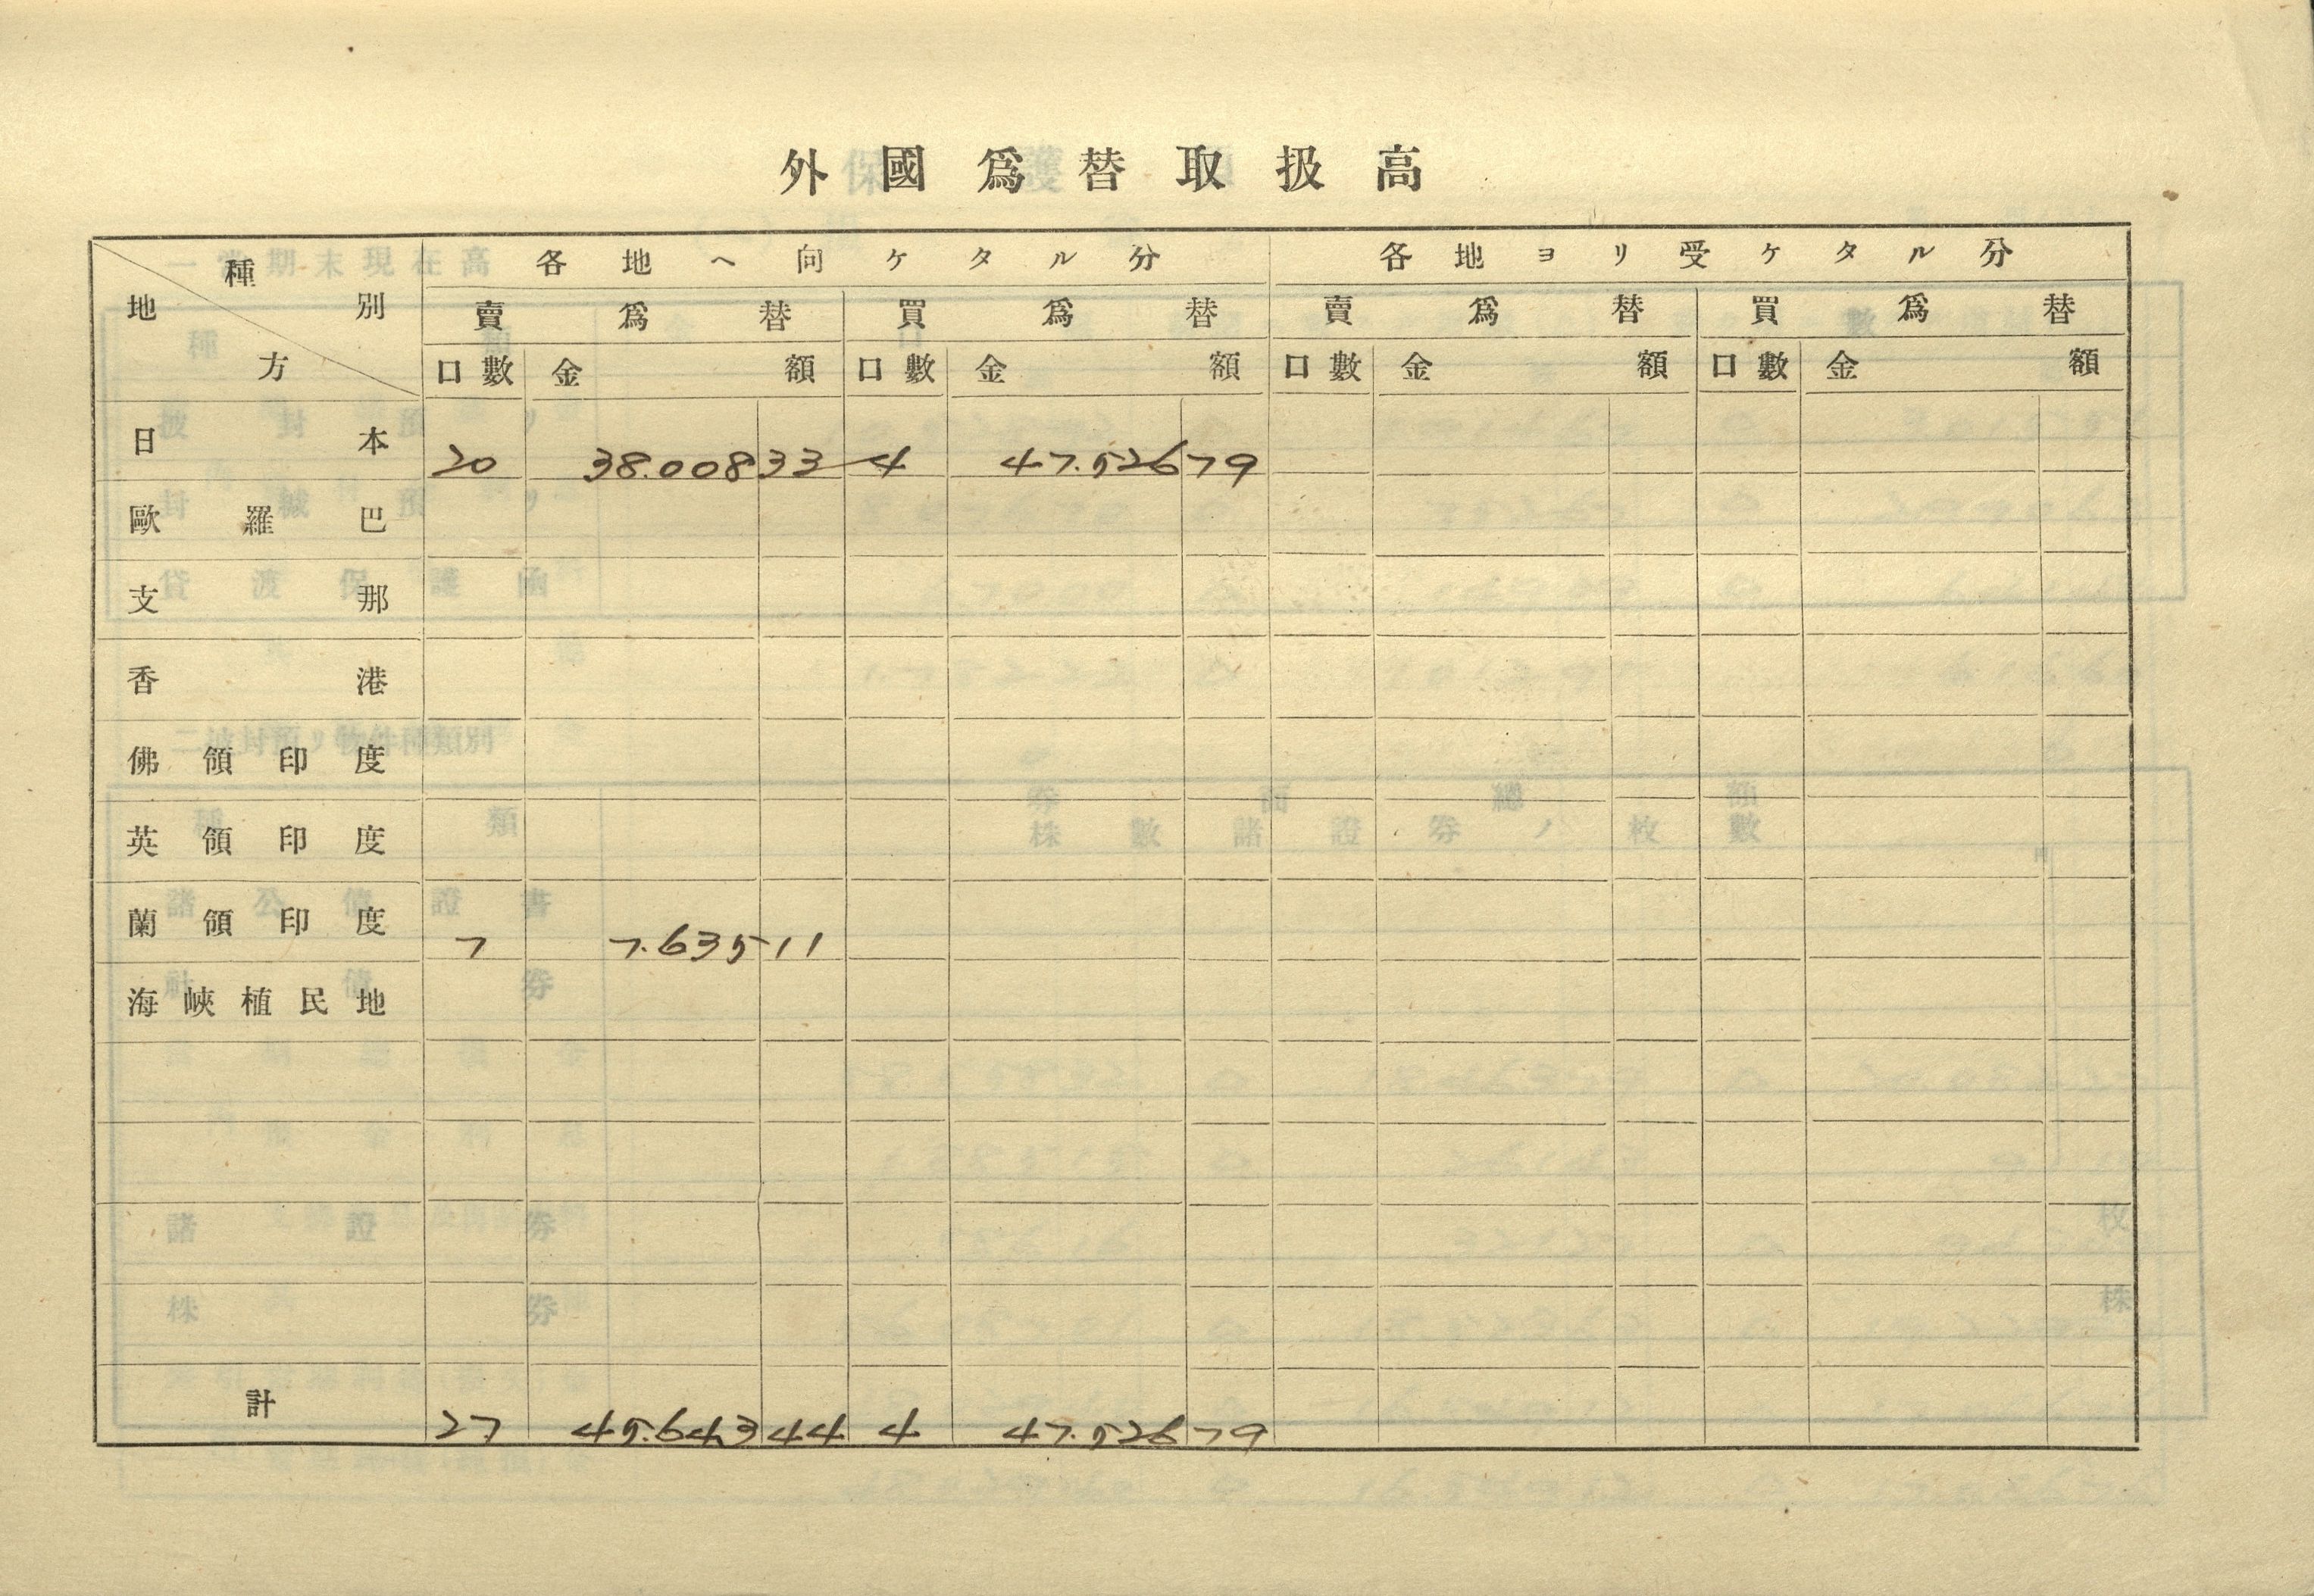 外國爲替取扱高
種別 地方 各地ヘ向ケタル分 各地ヨリ受ケタル分
賣爲替 買爲替 賣爲替 買爲替
口數 金額 口數 金額 口數 金額 口數 金額
日本 20 38.008 33 4 47.526 79
歐羅巴
支那
香港
佛領印度
英領印度
蘭領印度 7 7.635 11
海峽植民地
計 27 45.643 44 4 47.526 79